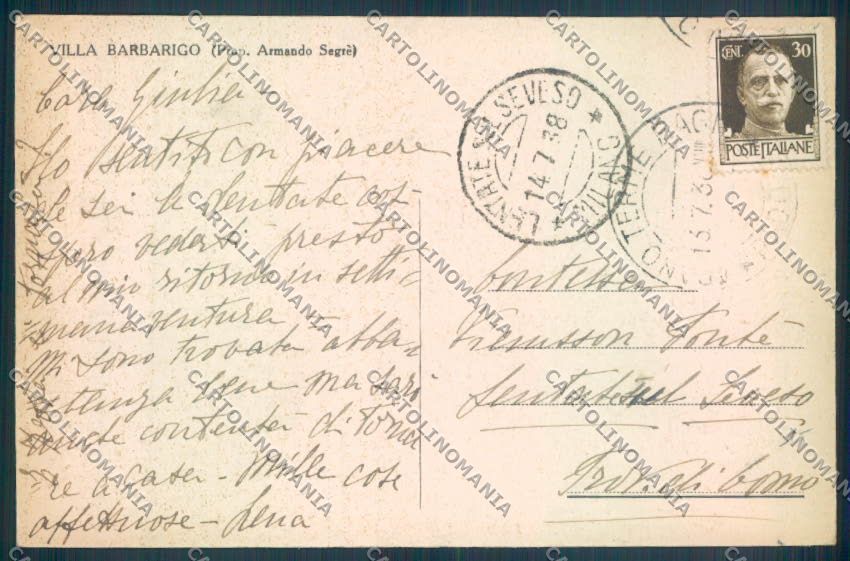 VILLA BARBARIGO (Prop. Armando Segrè)
Cara Giulia
Ho sentito con piacere
che sei a Lentate
spero vederti presto
al mio ritorno in setti-
mana ventura
Mi sono trovata abba-
stanza bene ma sarò
contenta di torna
re a casa - Mille cose
affettuose - Lena
CENT. 30
POSTE ITALIANE
LENTATE SUL SEVESO * MILANO *
14.7.38
ANO TERME
13.7.38
Contessa
Lentate sul Seveso
Prov. di Como
CARTOLINOMANIA